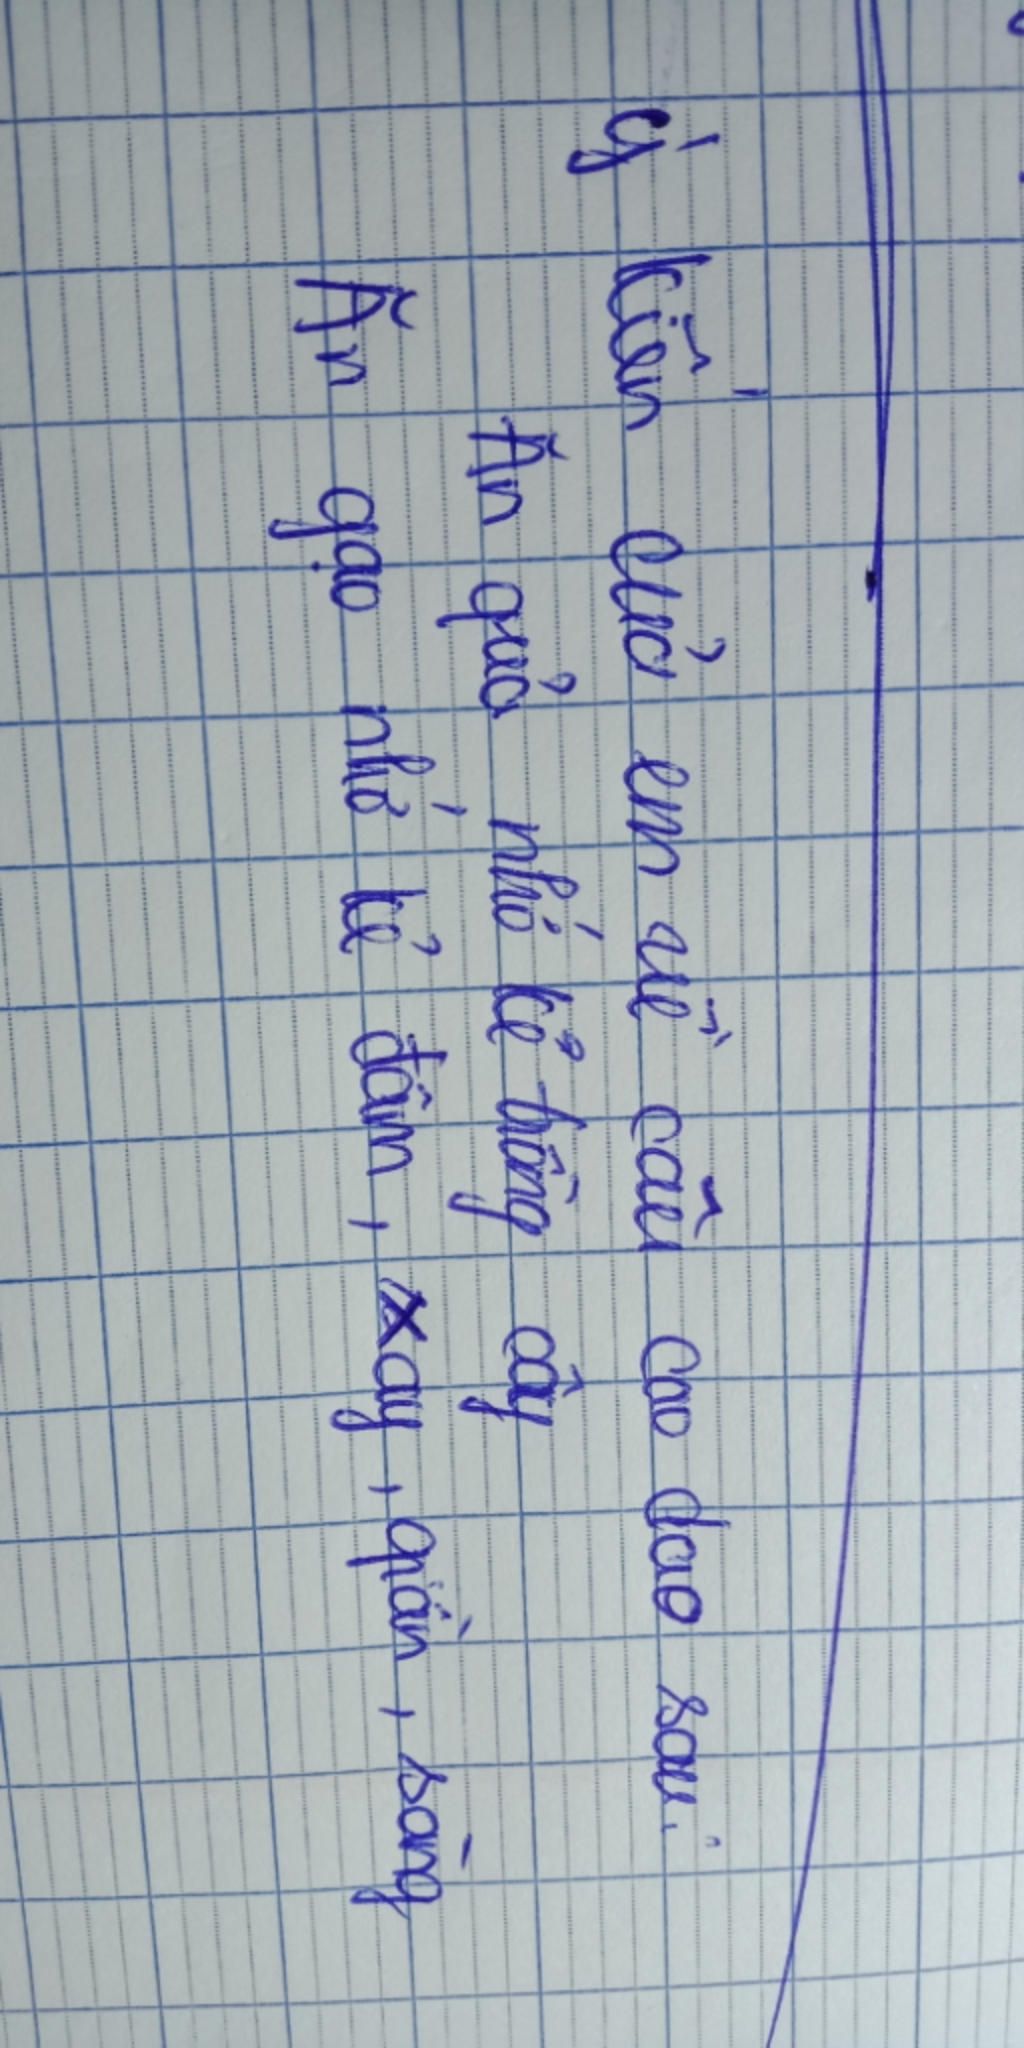 Ý kiến của em về câu cao dao sau:
Ăn quả nhớ kẻ trồng cây
Ăn gạo nhớ kẻ đâm, xay, giần, sàng